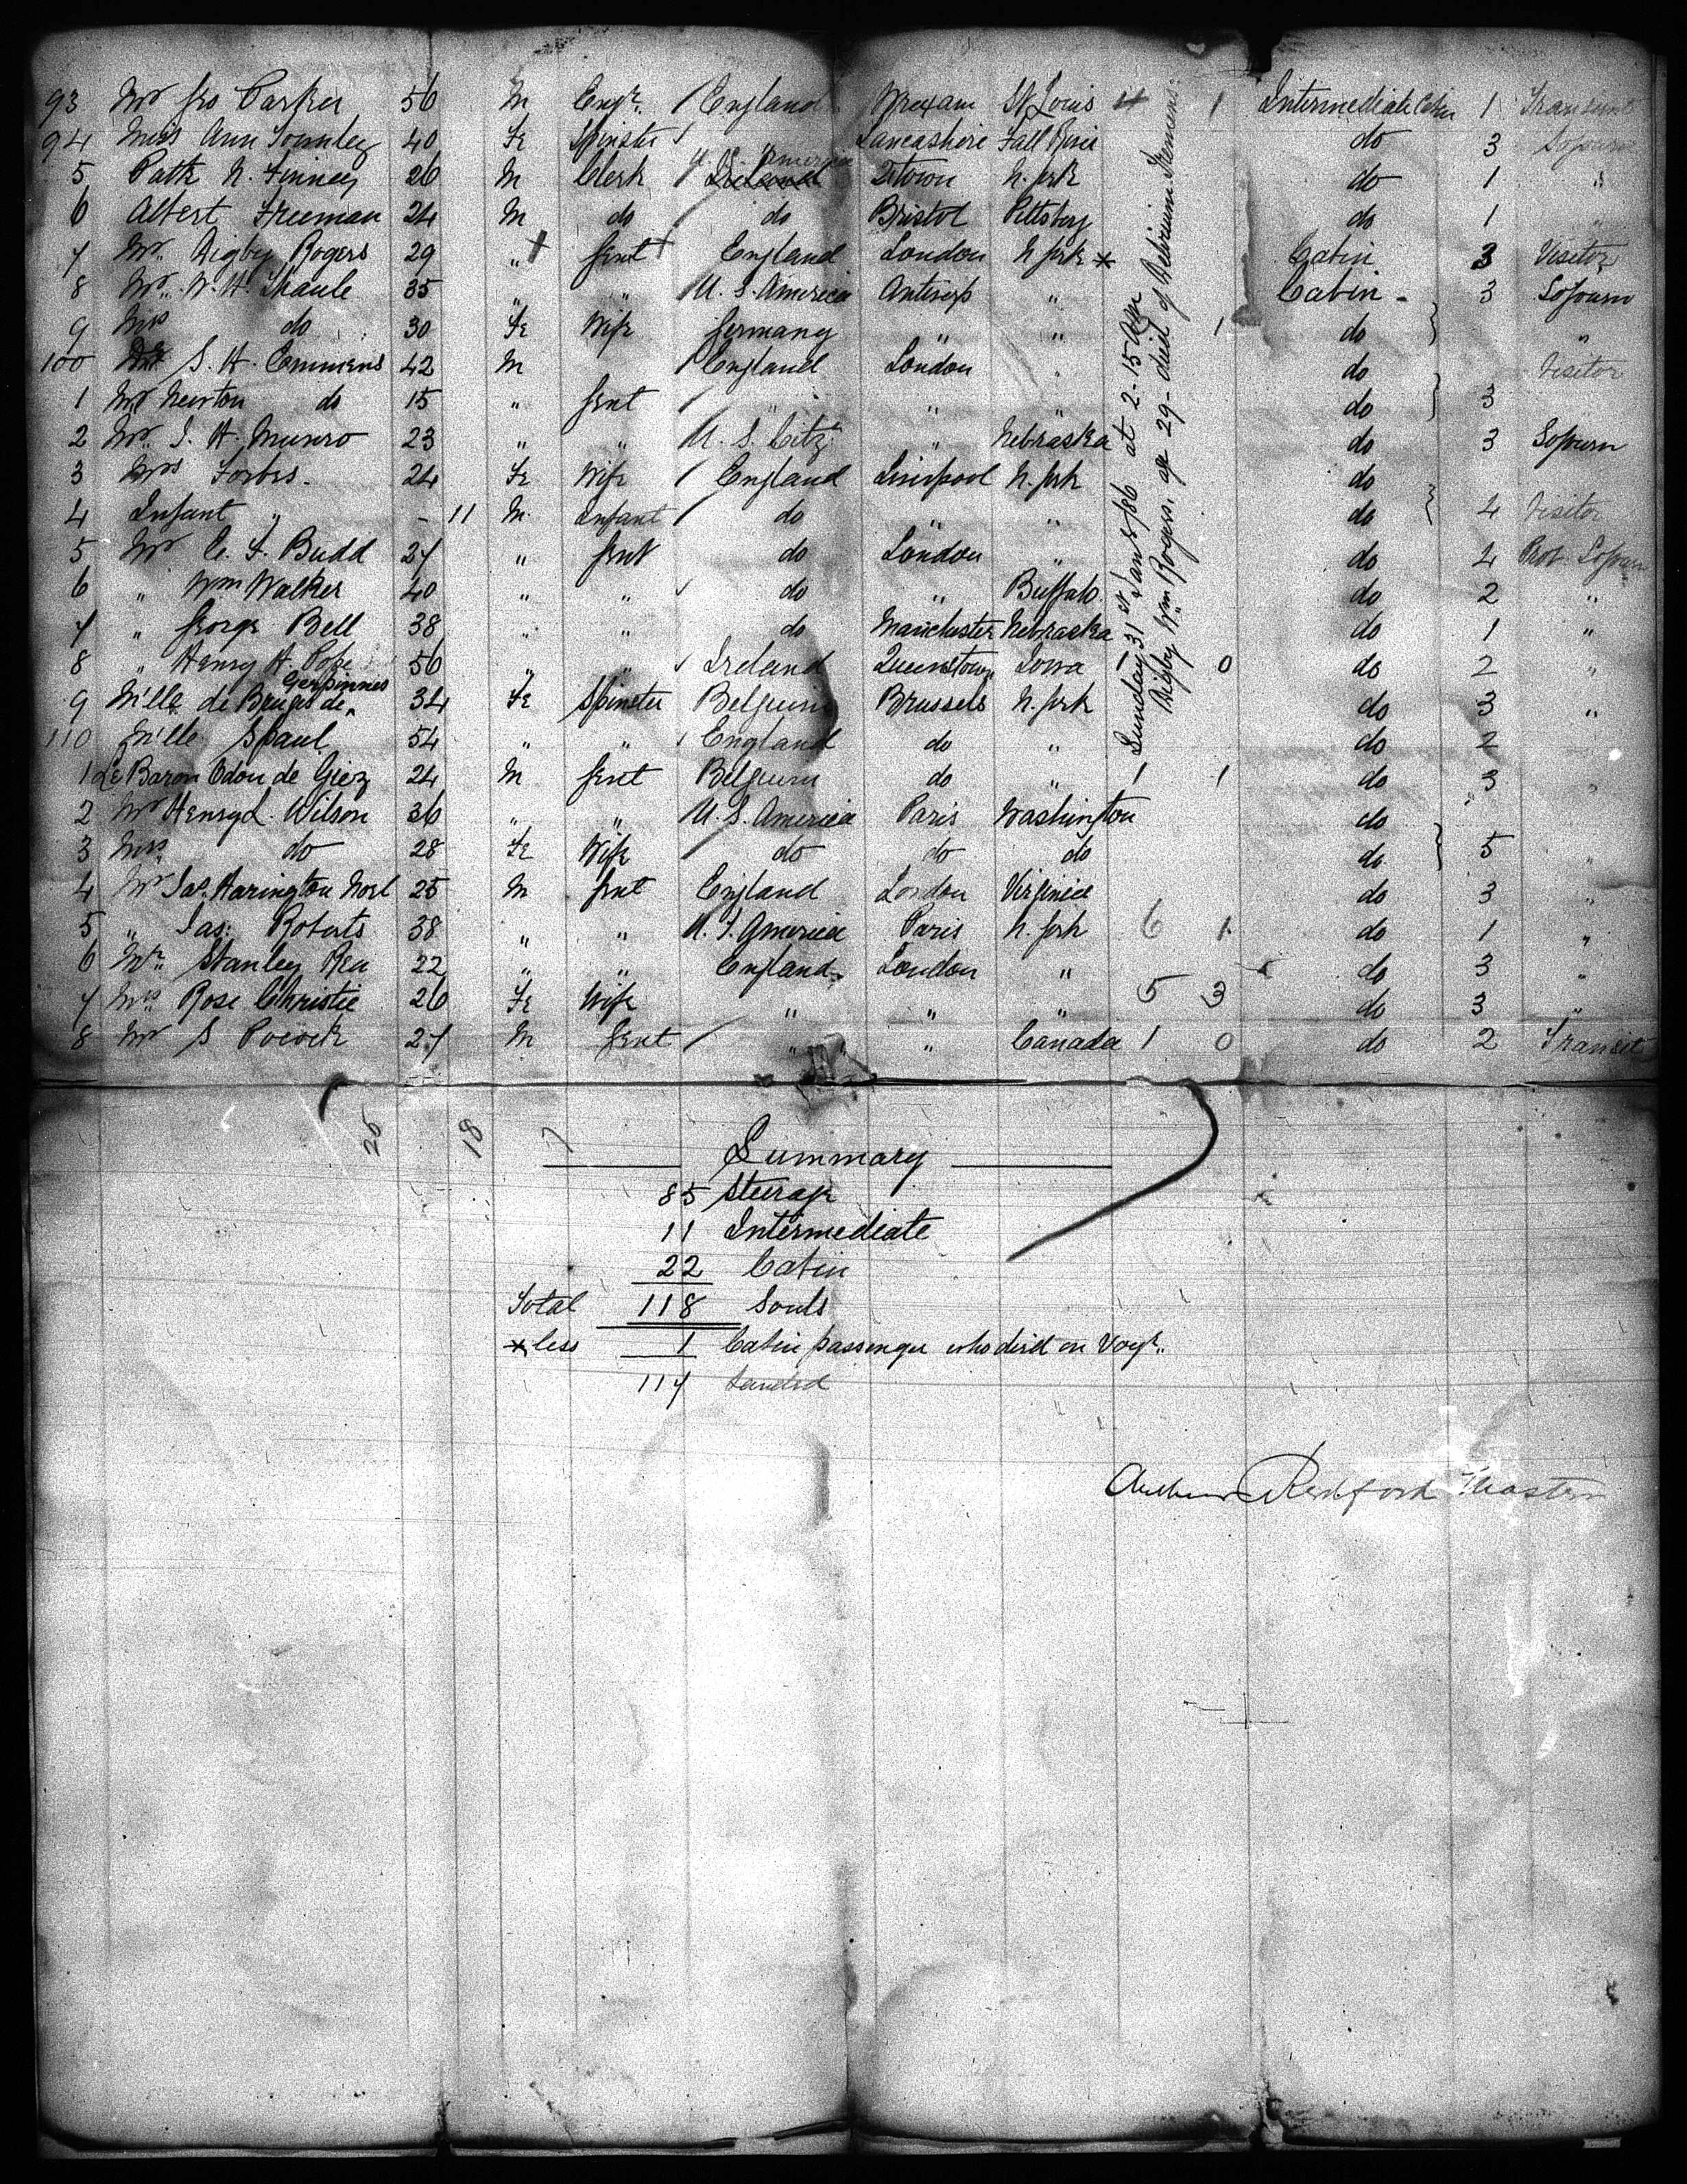 93 Mr Geo Parker 56 M Engr. England Wrexam St Louis 4 1 Intermediate Cabin 1 Transient
94 Miss Ann Townley 40 Fe Spinster Lancashire Fall River do 3 Sojourn
5 Patk N. Finney 26 M Clerk U. S. America Ireland Qtown N. York do 1 "
6 Albert Freeman 24 M do do Bristol Pittsburg do 1 "
7 Mr. Digby Rogers 29 " Gent England London N York * Cabin 3 Visitor
8 Mr. W. H. 35 " " U. S. America Antwerp " Cabin 3 Sojourn
9 Mrs do 30 Fe Wife Germany " " 1 do "
100 S. H. Emmens 42 M England London " do Visitor
1 Mr Newton do 15 " Gent " " " do 3
2 Mr. J. H. Munro 23 " " U. S. Citz. " Nebraska do 3 Sojourn
3 Mrs Forbes 24 Fe Wife England Liverpool N. York do
4 Infant " - 11 M. Infant do " " do 4 Visitor
5 Mr C. F. Budd 27 " Gent do London " do 4 Prot. Sojourn
6 " Wm Walker 40 " " do " Buffalo. do 2 "
7 " George Bell 38 " " do Manchester Nebraska do 1 "
8 " Henry H. Pope 56 " " Ireland Queenstown Iowa 1 0 do 2 "
9 M'lle de Bruges de Gerpinnes 34 Fe Spinster Belguim Brussels N. York do 3 "
110 M'lle Spaul 54 " " England do " do 2 "
1 Le Baron Edou de Giez 24 M Gent Belguim do " 1 1 do 3 "
2 Mr Henry L. Wilson 36 " " U. S. America Paris Washington do
3 Mrs do 28 Fe Wife do do do do 5 "
4 Mr Jas. Harington Noel 25 M Gent England London Virginia do 3 "
5 " Jas: Roberts 38 " " U. S. America Paris N. York 6 1 do 1 "
6 Mr. Stanley Rea 22 " " England London " do 3 "
7 Mrs Rose Christie 26 Fe Wife " " " 5 3 do 3 "
8 Mr S Pocock 27 M Gent " " Canada 1 0 do 2 Transit
Sunday 31st Jany/86 at 2-15
Digby Wm Rogers. age 29 - died of Delirium Tremens.
26 18 7
Summary
85 Steerage
11 Intermediate
22 Cabin
Total 118 Souls
* less 1 Cabin passenger who died on Voyge.
117 Landed
Arthur Redford Master